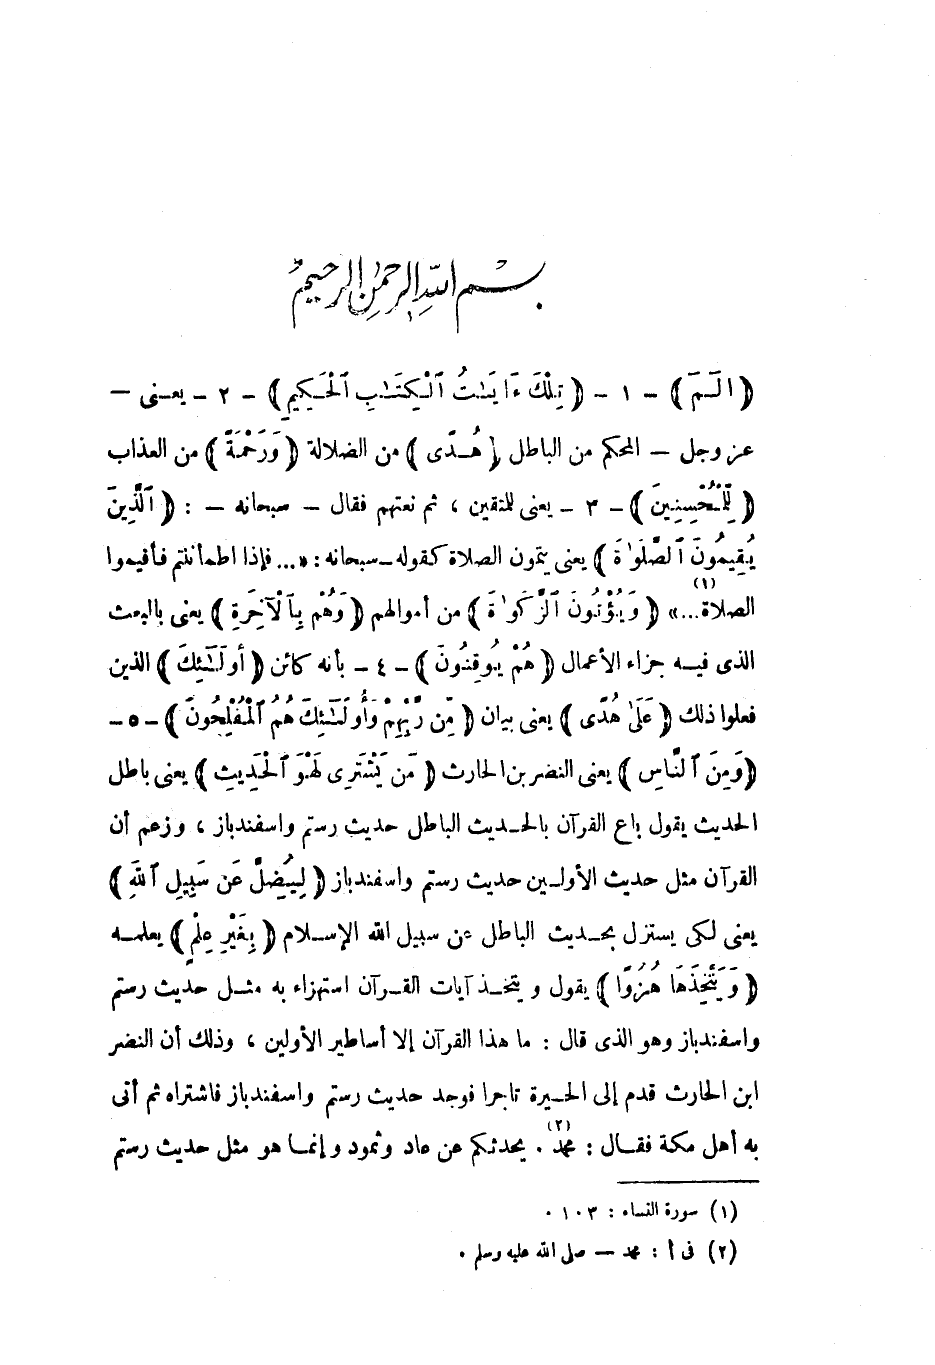 بسم الله الرحمن الرحيم
﴿ الٓمٓ ﴾ - ١ - ﴿ تِلْكَ ءَايَـٰتُ ٱلْكِتَـٰبِ ٱلْحَكِيمِ ﴾ - ٢ - يعنى —
عز وجل — المحكم من الباطل ﴿ هُدًى ﴾ من الضلالة ﴿ وَرَحْمَةً ﴾ من العذاب
﴿ لِّلْمُحْسِنِينَ ﴾ - ٣ - يعنى للمتقين ، ثم نعتهم فقال — سبحانه — : ﴿ ٱلَّذِينَ
يُقِيمُونَ ٱلصَّلَوٰةَ ﴾ يعنى يتمون الصلاة كقوله - سبحانه : «... فإذا اطمأننتم فأقيموا
الصلاة...»(١) ﴿ وَيُؤْتُونَ ٱلزَّكَوٰةَ ﴾ من أموالهم ﴿ وَهُم بِٱلْآخِرَةِ ﴾ يعنى بالبعث
الذى فيه جزاء الأعمال ﴿ هُمْ يُوقِنُونَ ﴾ - ٤ - بأنه كائن ﴿ أُولَـٰٓئِكَ ﴾ الذين
فعلوا ذلك ﴿ عَلَىٰ هُدًى ﴾ يعنى بيان ﴿ مِّن رَّبِّهِمْ وَأُولَـٰٓئِكَ هُمُ ٱلْمُفْلِحُونَ ﴾ - ٥ -
﴿ وَمِنَ ٱلنَّاسِ ﴾ يعنى النضر بن الحارث ﴿ مَن يَشْتَرِى لَهْوَ ٱلْحَدِيثِ ﴾ يعنى باطل
الحديث يقول باع القرآن بالحديث الباطل حديث رستم واسفندباز ، وزعم أن
القرآن مثل حديث الأولين حديث رستم واسفندباز ﴿ لِيُضِلَّ عَن سَبِيلِ ٱللَّهِ ﴾
يعنى لكى يستزل بحديث الباطل عن سبيل الله الإسلام ﴿ بِغَيْرِ عِلْمٍ ﴾ يعلمه
﴿ وَيَتَّخِذَهَا هُزُوًا ﴾ يقول ويتخذ آيات القرآن استهزاء به مثل حديث رستم
واسفندباز وهو الذى قال : ما هذا القرآن إلا أساطير الأولين ، وذلك أن النضر
ابن الحارث قدم إلى الحيرة تاجرا فوجد حديث رستم واسفندباز فاشتراه ثم أتى
به أهل مكة فقال : محمد(٢) . يحدثكم عن عاد وثمود وإنما هو مثل حديث رستم
(١) سورة النساء : ١٠٣ .
(٢) فى أ : محمد — صلى الله عليه وسلم .